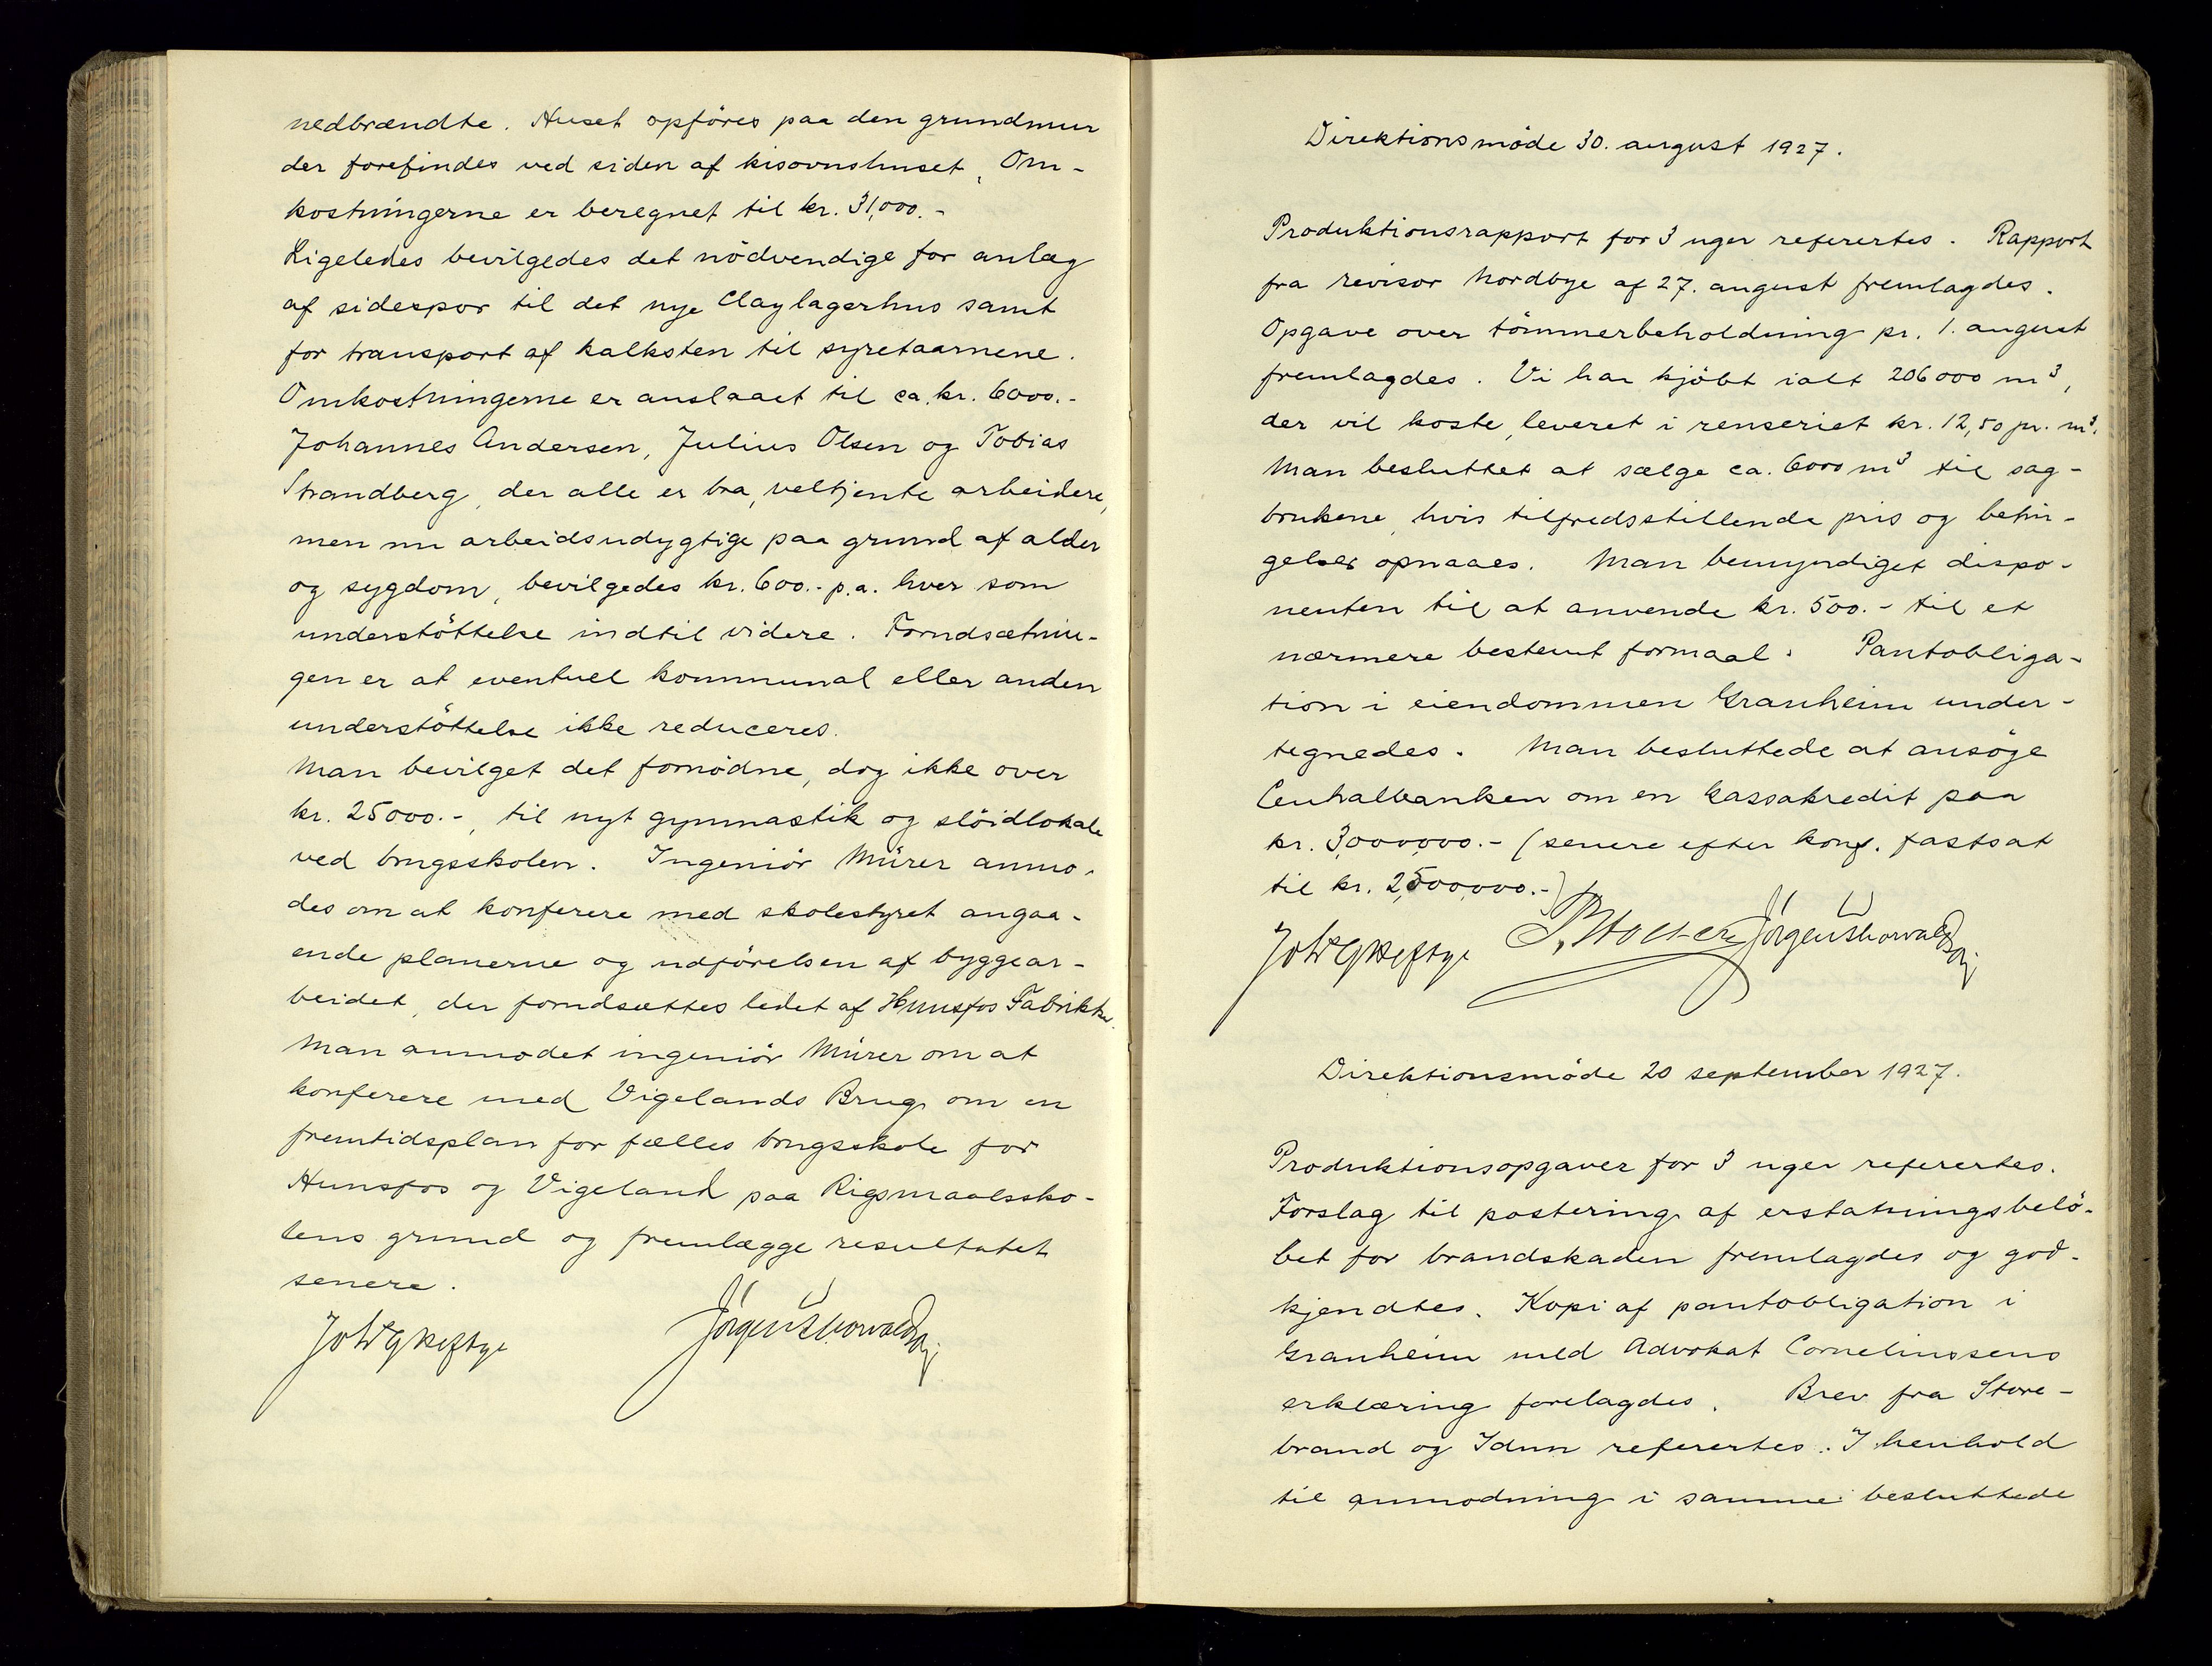 nedbrændte. Huset opføres paa den grundmur
der forefindes ved siden af kisovnshuset, Om-
kostningerne er beregnet til kr. 31,000.-
Ligeledes bevilgedes det nödvendige for anlæg
af sidespor til det nye Claylagerhus samt
for transport af kalksten til syretaarnene.
Omkostningerne er anslaaet til ca. kr. 6000.-
Johannes Andersen, Julius Olsen og Tobias
Strandberg, der alle er bra, veltjente arbeidere,
men nu arbeidsudygtige paa grund af alder
og sygdom, bevilgedes kr. 600.- p.a. hver som
understöttelse indtil videre. Forudsætnin-
gen er at eventuel kommunal eller anden
understöttelse ikke reduceres.
Man bevilget det fornödne, dog ikke over
kr. 25000.-, til nyt gymnastik og slöidlokale
ved brugsskolen. Ingeniör Mürer anmo-
des om at konferere med skolestyret angaa-
ende planerne og udförelsen af byggear-
beidet, der forudsættes ledet af Hunsfos Fabrikker.
Man anmodet ingeniör Mürer om at
konferere med Vigelands Brug om en
fremtidsplan for fælles brugsskole for
Hunsfos og Vigeland paa Rigsmaalssko-
lens grund og fremlægge resultatet
senere.
Joh G Heftye Jörgen Thorvaldsøn
Direktionsmöde 30. august 1927.
Produktionsrapport for 3 uger refertes. Rapport
fra revisor Nordbye af 27. august fremlagdes.
Opgave over tömmerbeholdning pr. 1. august
fremlagdes. Vi har kjöbt ialt 206000 m³,
der vil koste, leveret i renseriet kr. 12,50 pr. m³.
Man besluttet at sælge ca. 6000 m³ til sag-
brukene, hvis tilfredsstillende pris og betin-
gelser opnaaes. Man bemyndiget dispo-
nenten til at anvende kr. 500.- til et
nærmere bestemt formaal. Pantobliga-
tion i eiendommen Granheim under-
tegnedes. Man besluttede at ansöge
Centralbanken om en kassakredit paa
kr. 3,000,000.- (senere efter konf. fastsat
til kr. 2,500,000.-)
Joh G Heftye Jörgen Thorvaldsøn
Direktionsmöde 20 september 1927.
Produktionsopgaver for 3 uger refererter.
Forslag til postering af erstatningsbelö-
bet for brandskaden fremlagdes og god-
kjendtes. Kopi af pantobligation i
Granheim med Advokat Corneliussens
erklæring forelagdes. Brev fra Store-
brand og Idun refererter. I henhold
til anmodning i samme besluttede